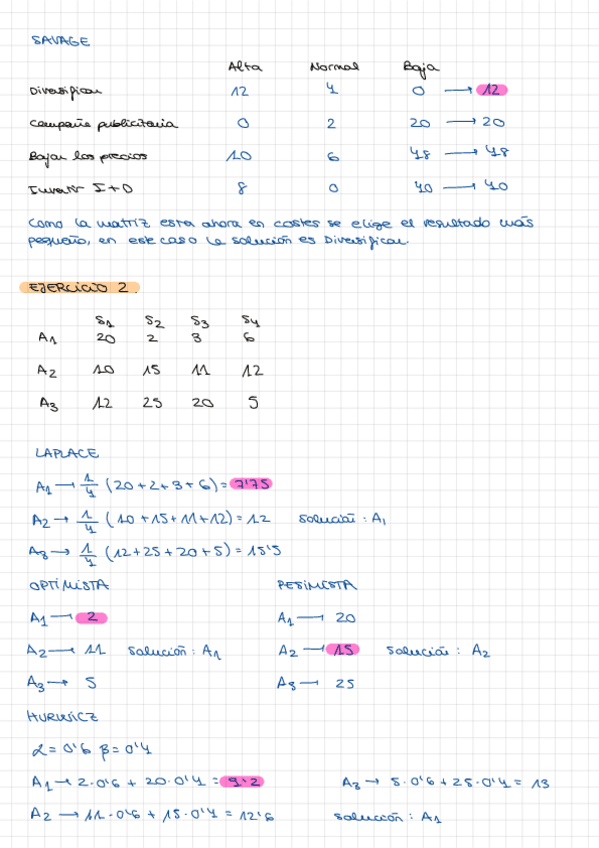 SAVAGE
Alta Normal Baja
Diversificar 12 4 0 → 12
Campaña publicitaria 0 2 20 → 20
Bajar los precios 10 6 48 → 48
Invertir I+D 8 0 40 → 40
Como la matriz esta ahora en costes se elige el resultado más
pequeño, en este caso la solución es Diversificar.
EJERCICIO 2.
S1 S2 S3 S4
A1 20 2 3 6
A2 10 15 11 12
A3 12 25 20 5
LAPLACE
A1 → 1/4 (20+2+3+6) = 7'75
A2 → 1/4 (10+15+11+12) = 12 solución: A1
A3 → 1/4 (12+25+20+5) = 15'5
OPTIMISTA PESIMISTA
A1 → 2 A1 → 20
A2 → 11 solución: A1 A2 → 15 solución: A2
A3 → 5 A3 → 25
HURWICZ
α = 0'6 β = 0'4
A1 → 2·0'6 + 20·0'4 = 9'2 A3 → 5·0'6 + 25·0'4 = 13
A2 → 11·0'6 + 15·0'4 = 12'6 solución: A1